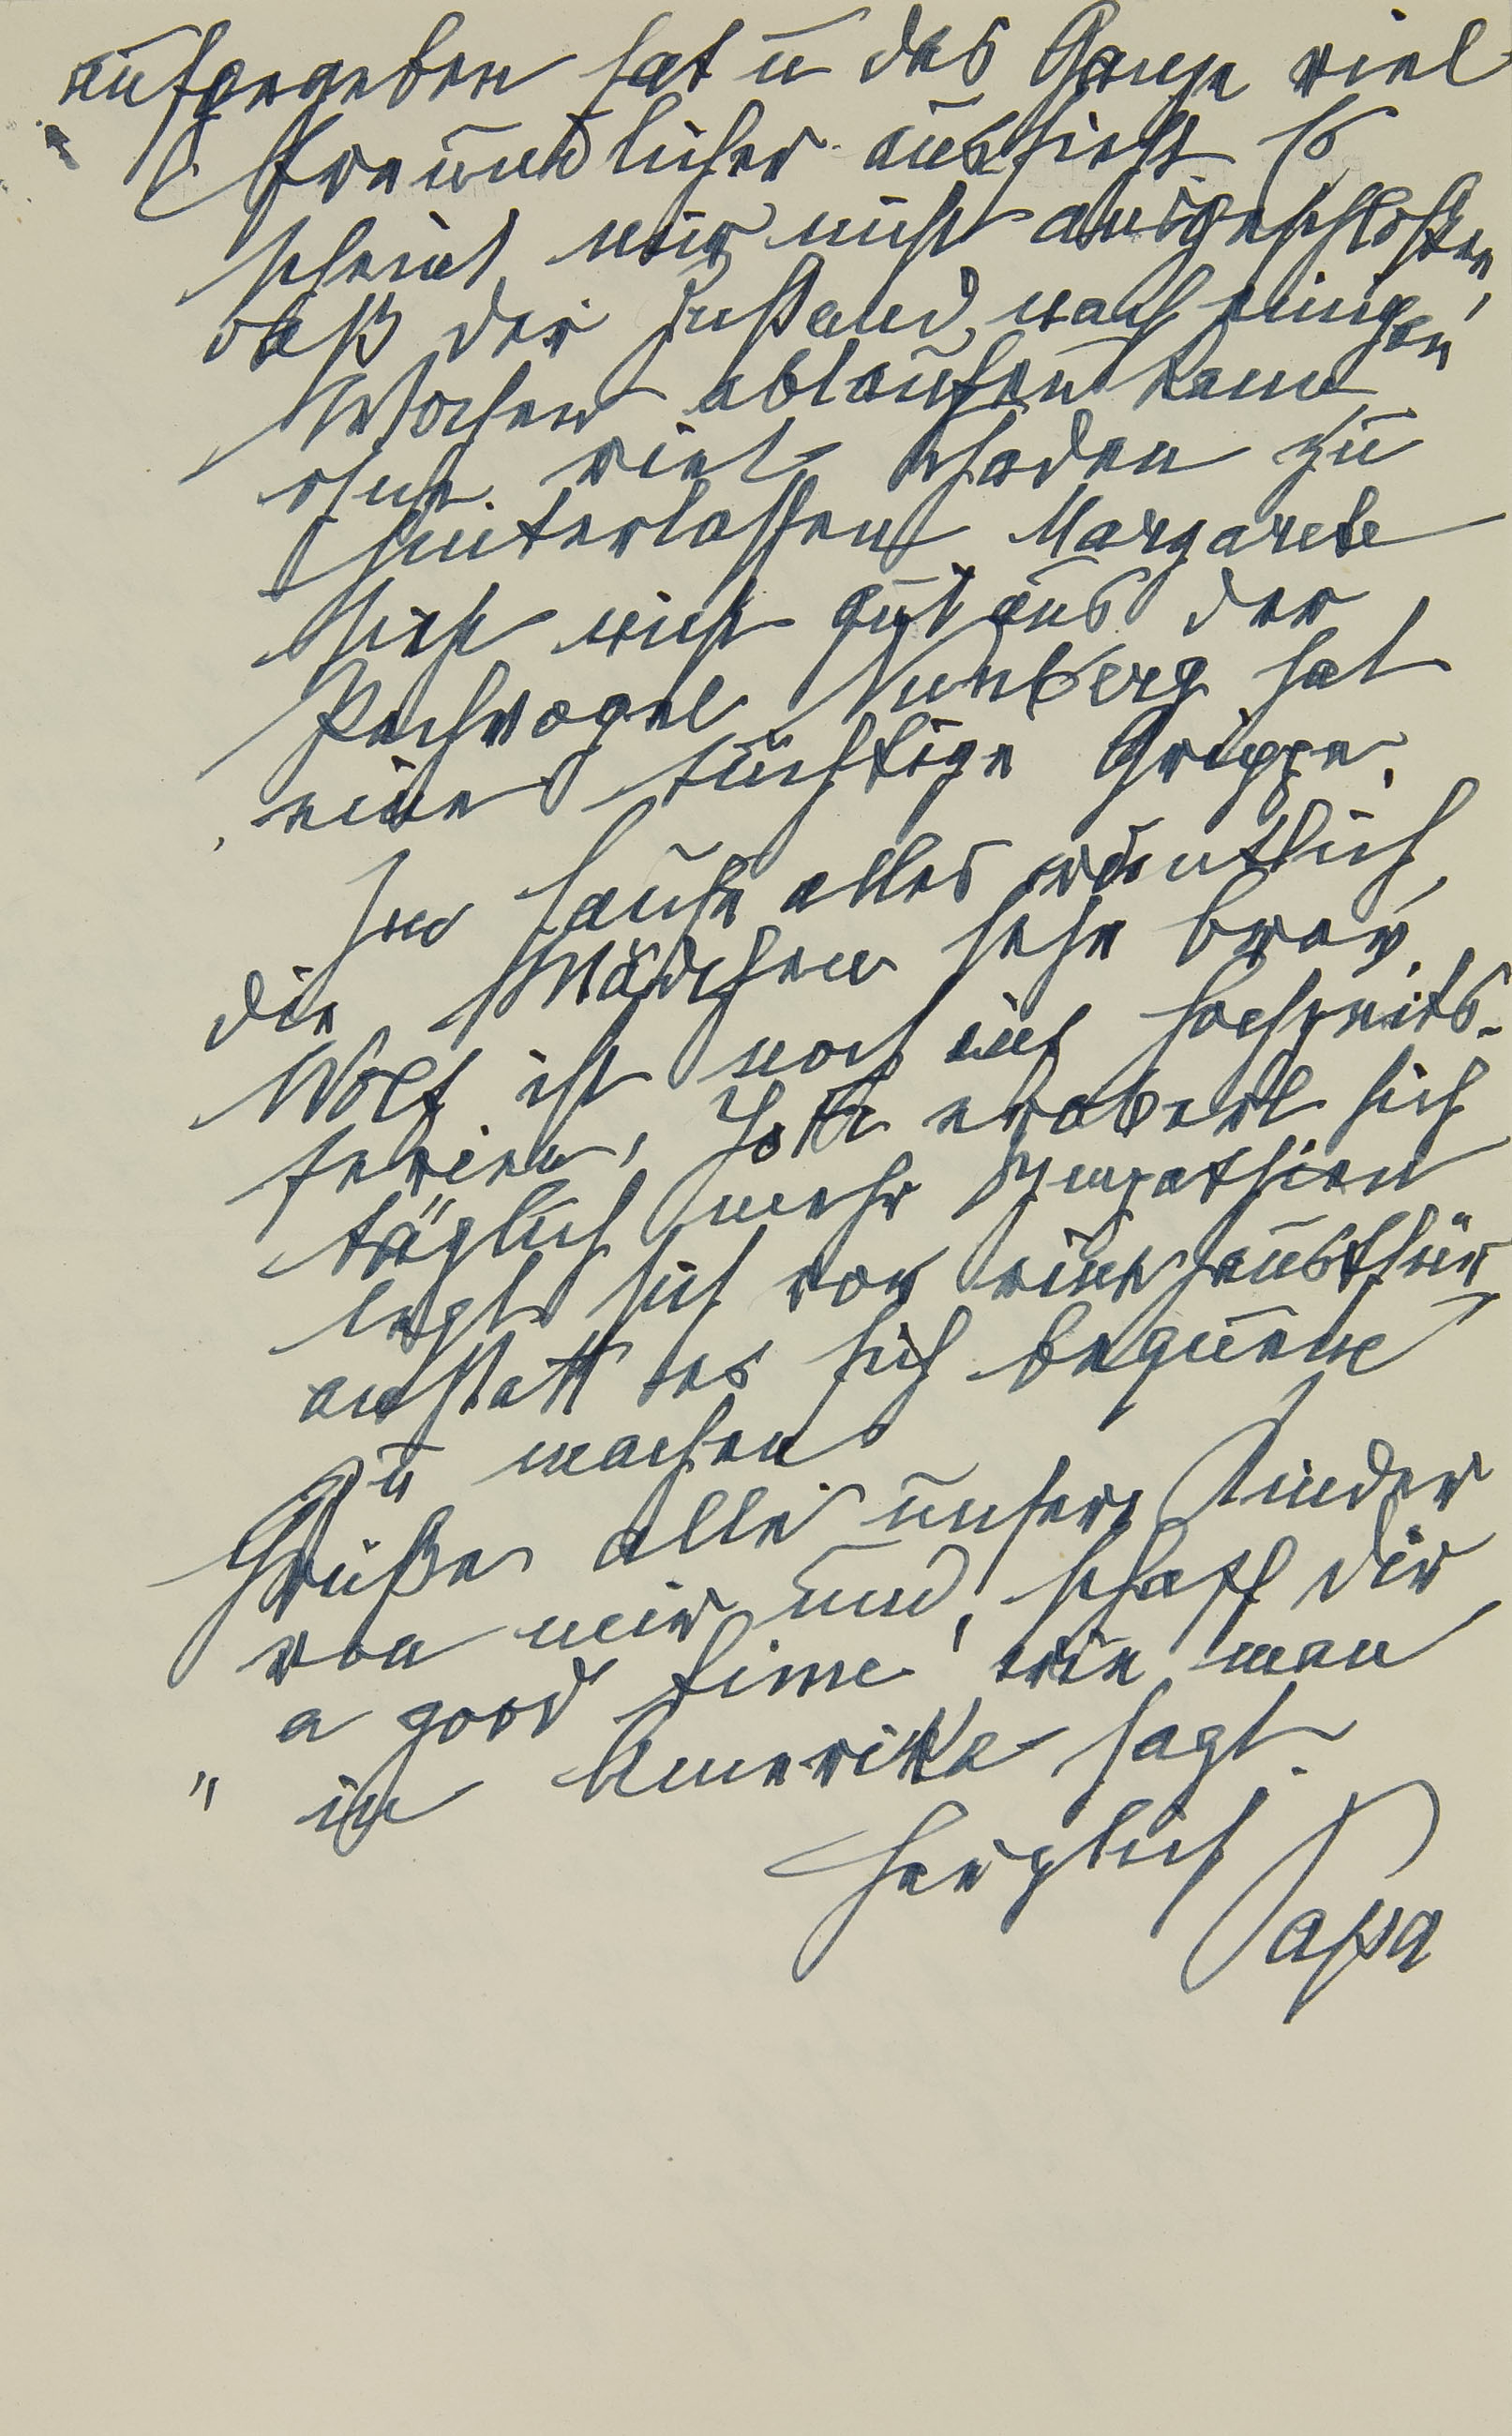 aufgegeben hat u das Ganze viel
freundlicher aussieht. Es
scheint mir nicht ausgeschlossen,
daß der Zustand nach einigen
Wochen ablaufen kann
ohne viel Schaden zu
hinterlassen. Margarete
sieht nicht gut aus. Der
Pechvogel Nunberg hat
eine tüchtige Grippe.
Im Hause alles ordentlich,
die Mädchen sehr brav.
Wolf ist noch auf Hochzeits-
ferien, Jofi erobert sich
täglich mehr Sympathien
legt sich vor eine Haustür
anstatt es sich bequem
zu machen.
Grüße alle unsere Kinder
von mir und schaff dir
"a good time" wie man
in Amerika sagt.
Herzlich
Papa